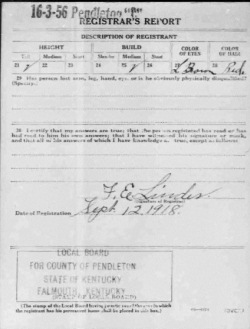 16-3-56 Pendleton C.
REGISTRAR'S REPORT
DESCRIPTION OF REGISTRANT
HEIGHT BUILD COLOR OF EYES COLOR OF HAIR
Tall Medium Short Slender Medium Stout
21 22 23 24 25 26 27 L Brown 28 Red
29 Has person lost arm, leg, hand, eye, or is he obviously physically disqualified?
(Specify.)
30 I certify that my answers are true; that the person registered has read or has
had read to him his own answers; that I have witnessed his signature or mark,
and that all of his answers of which I have knowledge are true, except as follows:
F. E. Linder
(Signature of Registrar)
Date of Registration Sept 12, 1918.
LOCAL BOARD
FOR COUNTY OF PENDLETON
STATE OF KENTUCKY
FALMOUTH, KENTUCKY
(STAMP OF LOCAL BOARD)
(The stamp of the Local Board having jurisdiction of the area in which the
registrant has his permanent home shall be placed in this box.)